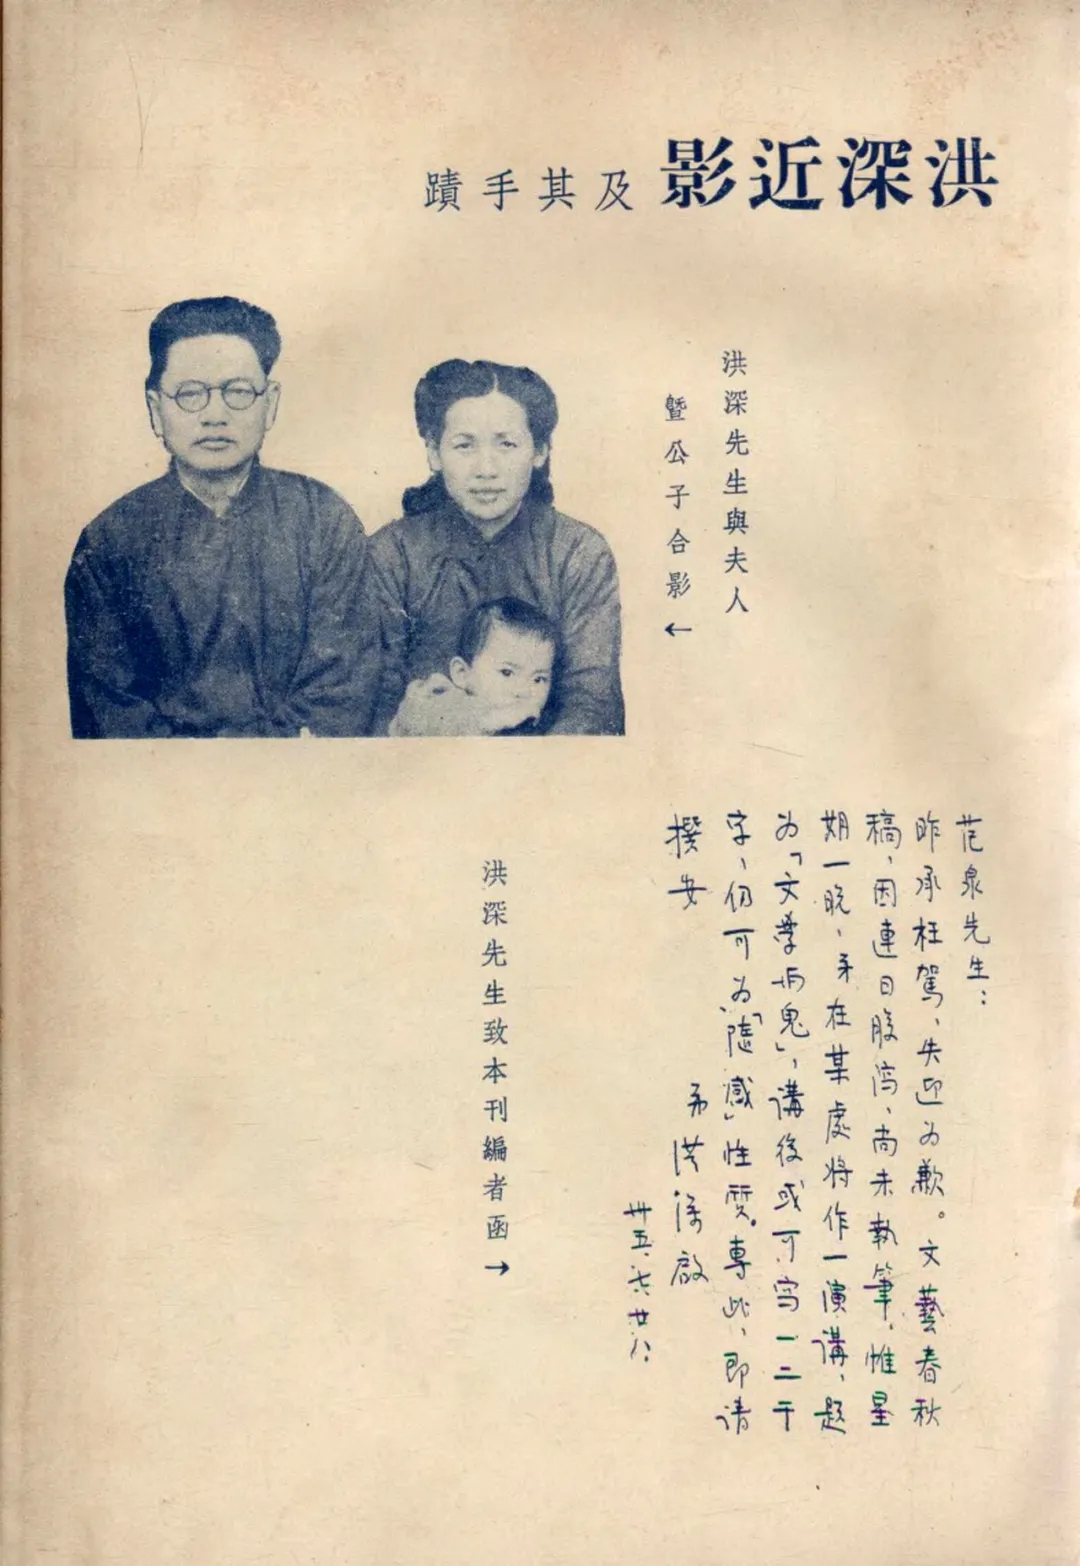 洪深近影及其手蹟
洪深先生與夫人
暨公子合影←
范泉先生：
昨承枉駕、失迎为歉。文藝春秋
稿、因連日腹瀉、尚未執筆。惟星
期一晚、弟在某處將作一演講、題
为「文學病鬼」、講後或可写一二千
字、仍可为「隨感」性質。專此、即请
撰安
弟洪深啟
卅五、六、廿八、
洪深先生致本刊編者函→